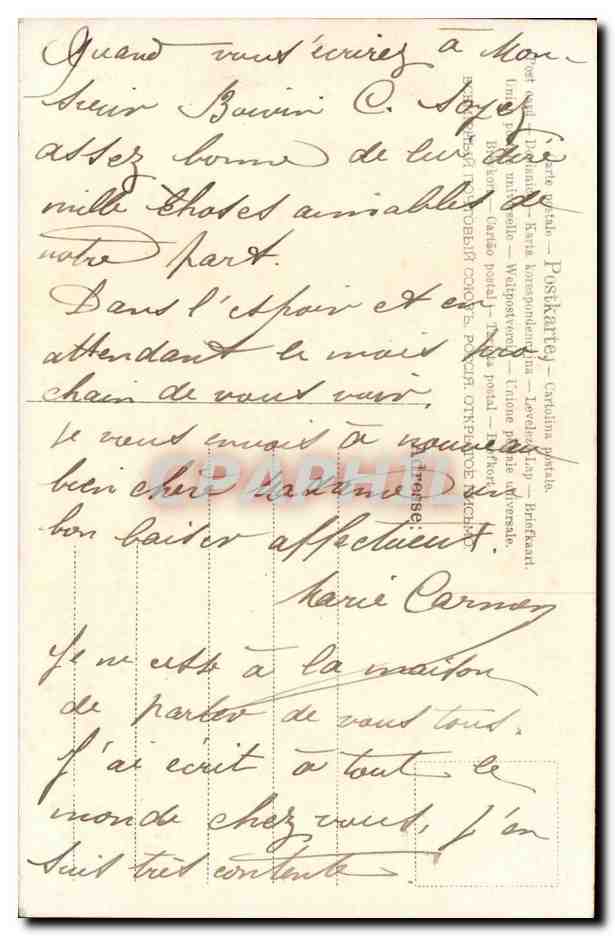 Quand vous écrirez à Mon-
sieur Boivin C. soyez
assez bonne de lui dire
mille choses aimables de
notre part.
Dans l'espoir et en
attendant le mois pro
chain de vous voir,
je vous envois à nouveau
bien chère Madame un
bon baiser affectueux.
Marie Carmen
Je ne cesse à la maison
de parler de vous tous.
J'ai écrit à tout le
monde chez vous, j'en
suis très contente.
Carte postale — Postkarte — Cartolina postale.
Post card — Dopisnice — Karta korespondencyjna — Levelező Lap — Briefkaart.
Union postale universelle — Weltpostverein — Unione postale universale.
Brefkort — Cartão postal — Tarjeta postal — Brefkort
ВСЕМІРНЫЙ ПОЧТОВЫЙ СОЮЗЪ. РОССІЯ. ОТКРЫТОЕ ПИСЬМО.
Adresse:
CPAPHIL